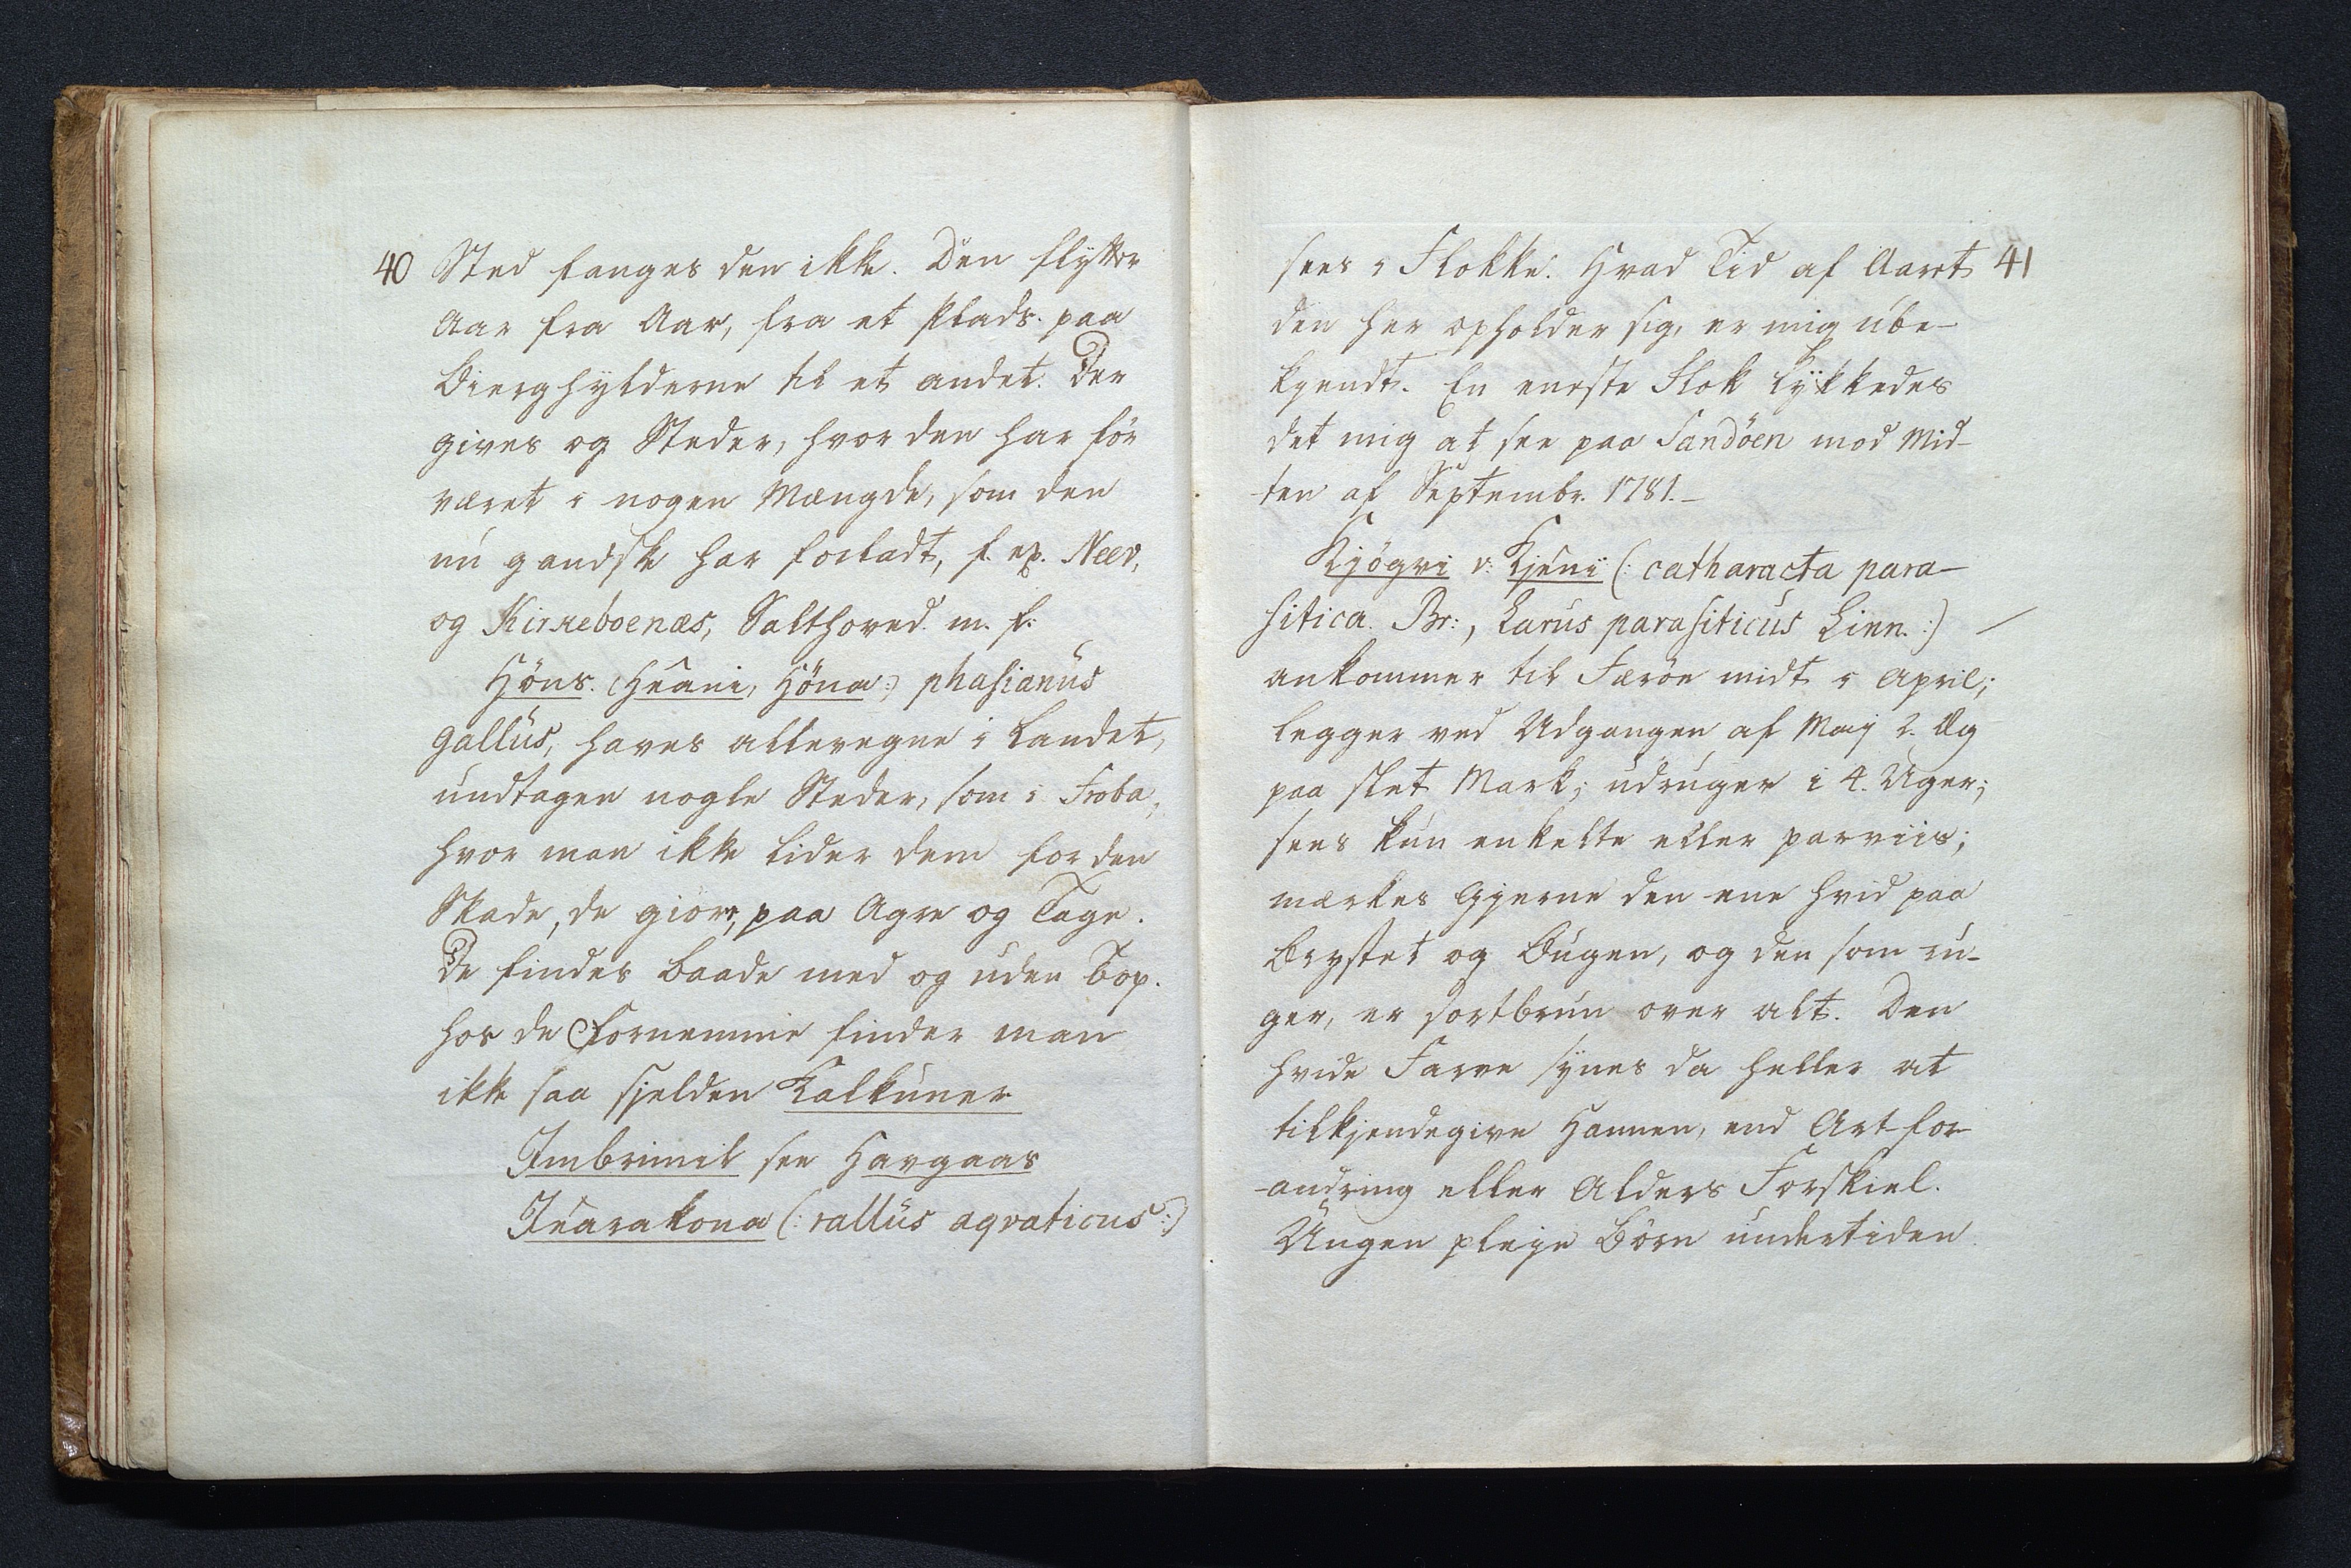 40 Sted fanges den ikke. Den flytter
Aar fra Aar, fra et Plads paa
Bierghylderne til et andet. Der
gives og Steder, hvor den har för
været i nogen Mængde, som den
nu gandske har forladt, f. ex. Næv,
og Kirkeboenæs, Salthoved m. fl:
Höns. (Heani, Höna:) phasianus
gallus, haves allevegne i Landet,
undtagen nogle Steder, som i Froba,
hvor man ikke lider dem for den
Skade, de giöre, paa Agre og Tage.
De findes baade med og uden Top.
hos de Fornemme finder man
ikke saa sjelden Kalkuner
Imbrimil see Havgaas
Jearakona (: rallus aqvaticus :)
sees i Flokke. Hvad Tid af Aaret 41
den her opholder sig, er mig ube-
kjendt. En eneste Flok lykkedes
det mig at see paa Sandöen mod Mid-
ten af Septembr. 1781. -
Kjögvi v: Kjeni (: catharacta para-
sitica. Br:, Larus parasiticus Linn. :)
ankommer til Færöe midt i April;
legger ved Udgangen af Maj 2. Æg
paa slet Mark; udruger i 4. Uger;
sees kun enkelte eller parviis;
mærkes gjerne den ene hvid paa
Brystet og Bugen, og den som ru-
ger, er sortbrun over alt. Den
hvide Farve synes da heller at
tilkjendegive Hannen, end Art for-
-andring eller Alders Forskiel.
Ungen pleje Börn undertiden